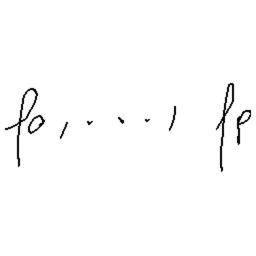 f₀, ..., fₚ